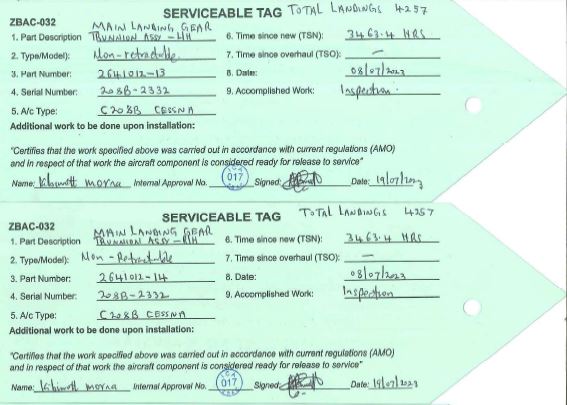 SERVICEABLE TAG TOTAL LANDINGS 4257
ZBAC-032
MAIN LANDING GEAR
1. Part Description TRUNNION ASSY - LH 6. Time since new (TSN): 3463.4 HRS
2. Type/Model): Non-retractable 7. Time since overhaul (TSO): —
3. Part Number: 2641012-13 8. Date: 08/07/2023
4. Serial Number: 208B-2332 9. Accomplished Work: Inspection.
5. A/c Type: C208B CESSNA
Additional work to be done upon installation:
"Certifies that the work specified above was carried out in accordance with current regulations (AMO)
and in respect of that work the aircraft component is considered ready for release to service"
Name: Internal Approval No. 017 Signed: Date: 19/07/2023
SERVICEABLE TAG TOTAL LANDINGS 4257
ZBAC-032
MAIN LANDING GEAR
1. Part Description TRUNNION ASSY - RH 6. Time since new (TSN): 3463.4 HRS
2. Type/Model): Non-Retractable 7. Time since overhaul (TSO): —
3. Part Number: 2641012-14 8. Date: 08/07/2023
4. Serial Number: 208B-2332 9. Accomplished Work: Inspection
5. A/c Type: C208B CESSNA
Additional work to be done upon installation:
"Certifies that the work specified above was carried out in accordance with current regulations (AMO)
and in respect of that work the aircraft component is considered ready for release to service"
Name: Internal Approval No. 017 Signed: Date: 19/07/2023